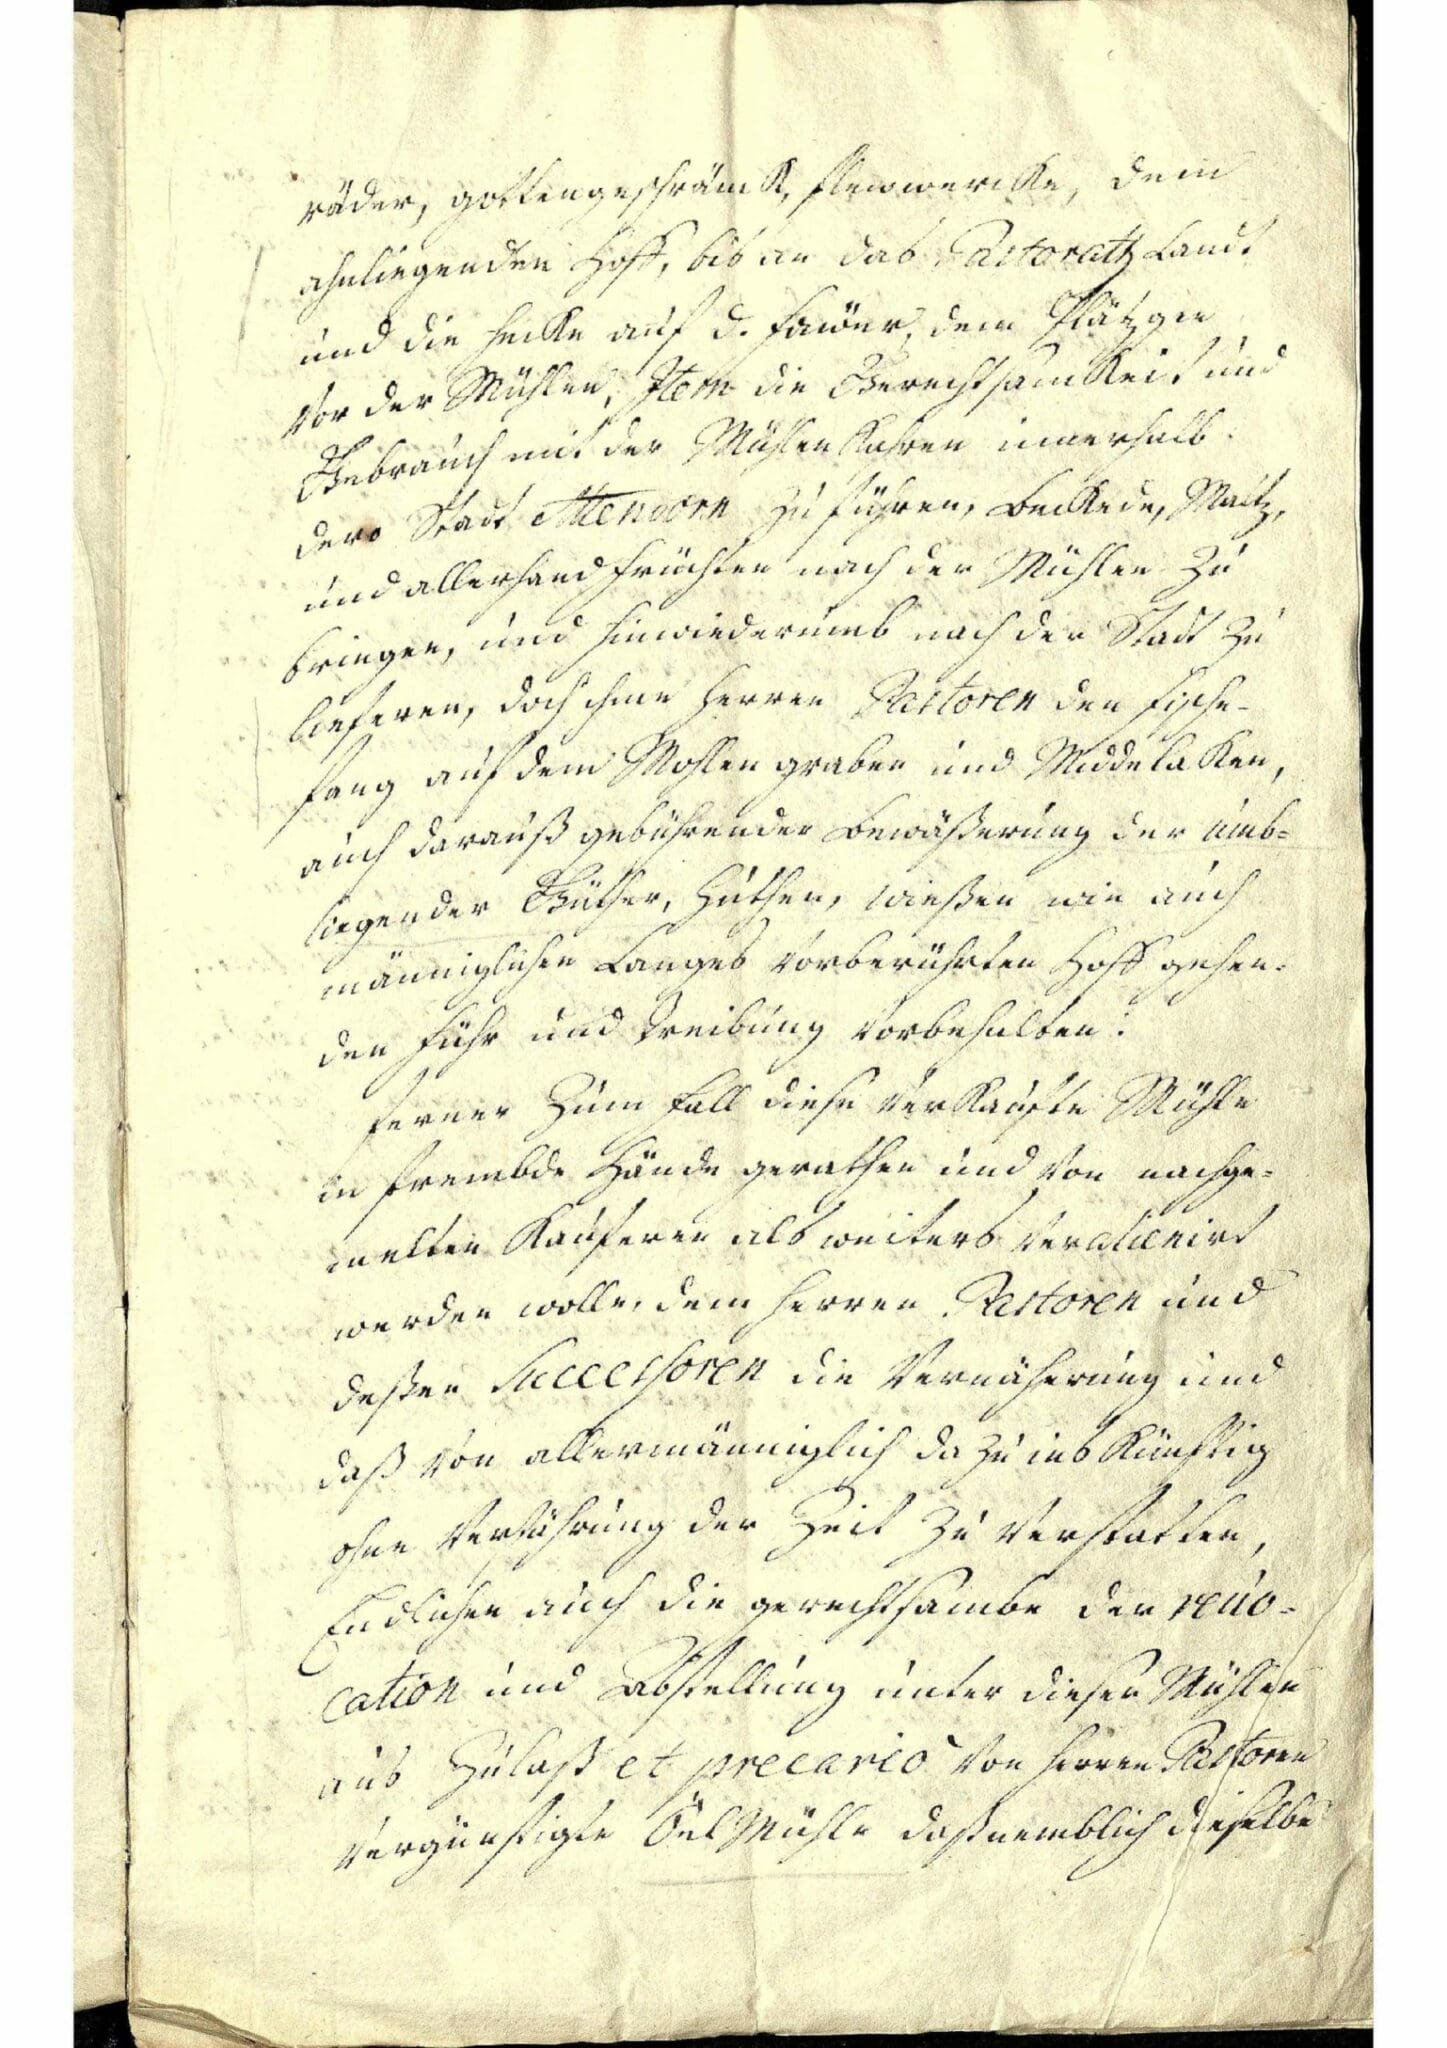 räder, gottengeschränck, fleuwercke, dem
ahnliegenden Hoff, bis an das Pastorath Landt
und die Hecke auf d. , dem Plätzgen
vor der Mühlen, Item die Gerechtsamkeit und
Gebrauch mit der Mühlen Kahren innerhalb
dero Stadt Attendorn zu führen, Beckede, Maltz,
und allerhand früchten nach der Mühlen zu
bringen, und hinwiederumb nach der Stadt zu
lieferen, doch ihme Herren Pastoren den fische-
fang auf dem Mohlen graben und Middelaken,
auch darauß gebührender Bewäßerung der umb-
liegender Güther, Huthen, wießen wie auch
männiglichen Langes vorberührten Hoff gehen-
den führ und Treibung vorbehalten:
ferner Zum fall diese verkaufte Mühle
in frembde Hände gerathen und von nachge-
melten Kauferen als weiters veralienirt
werden wolle, dem Herren Pastoren und
deßen Successoren die Vernäherung und
daß von allermänniglich dazu ins künftig
ohne Verjährung der Zeit zu verstatten,
Endlichen auch die gerechtsambe der revo-
cation und Abstellung unter dieser Mühlen
aus Zulaß et precario von Herren Pastoren
vergünstigte Öel Mühle daß nemblich dieselbe